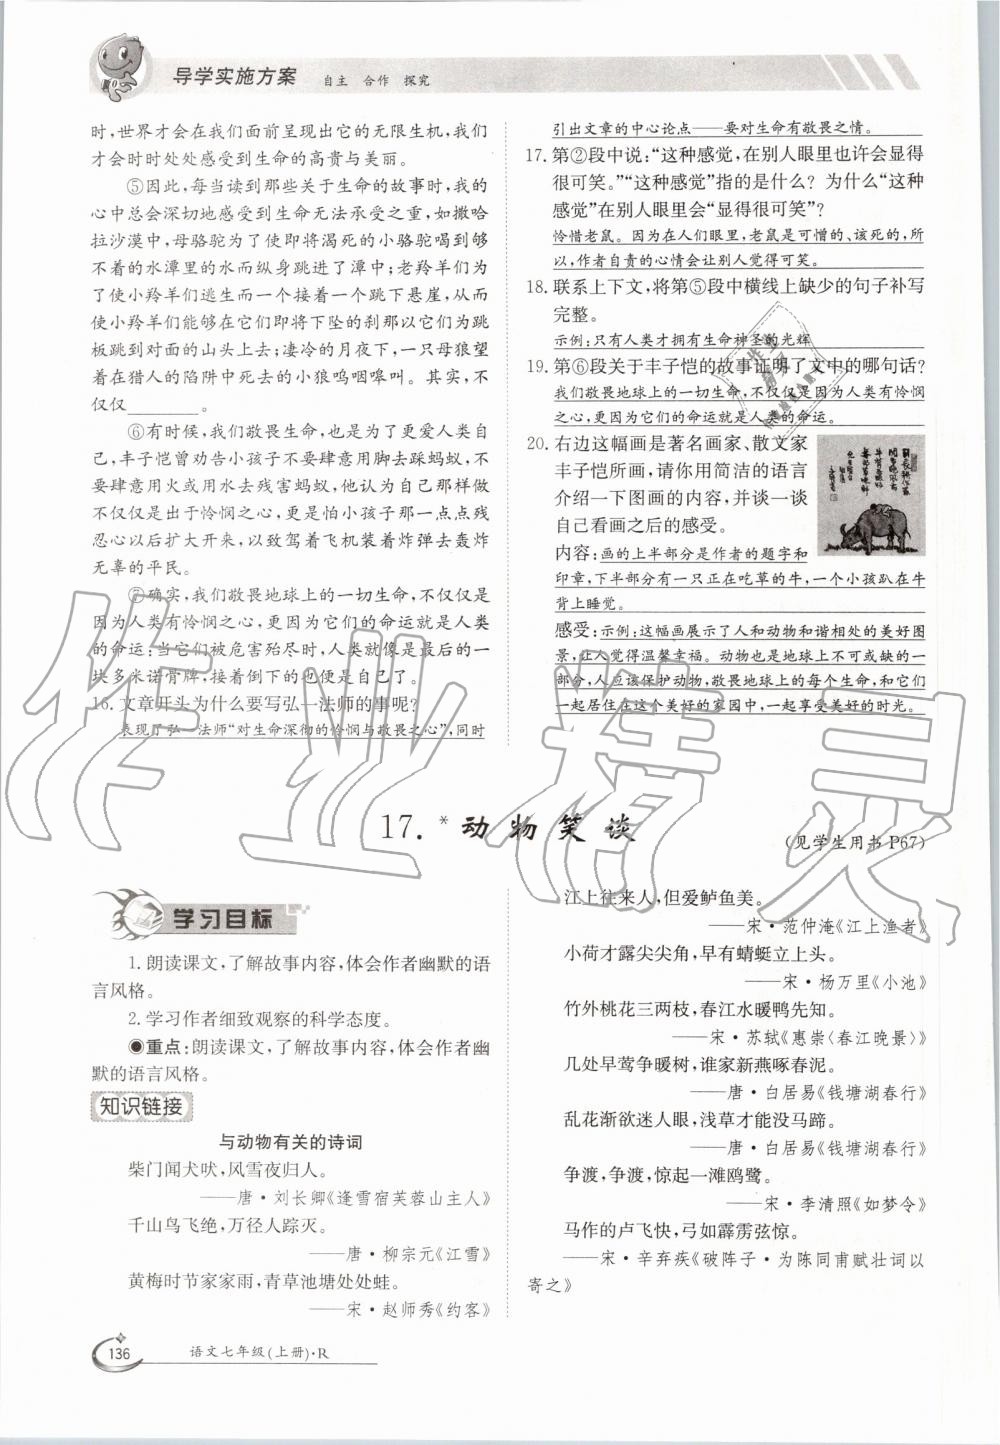 导学实施方案 自主 合作 探究
时,世界才会在我们面前呈现出它的无限生机,我们
才会时时处处感受到生命的高贵与美丽。
⑤因此,每当读到那些关于生命的故事时,我的
心中总会深切地感受到生命无法承受之重,如撒哈
拉沙漠中,母骆驼为了使即将渴死的小骆驼喝到够
不着的水潭里的水而纵身跳进了潭中;老羚羊们为
了使小羚羊们逃生而一个接着一个跳下悬崖,从而
使小羚羊们能够在它们即将下坠的刹那以它们为跳
板跳到对面的山头上去;凄冷的月夜下,一只母狼望
着在猎人的陷阱中死去的小狼呜咽嗥叫。其实,不
仅仅________。
⑥有时候,我们敬畏生命,也是为了更爱人类自
己,丰子恺曾劝告小孩子不要肆意用脚去踩蚂蚁,不
要肆意用火或用水去残害蚂蚁,他认为自己那样做
不仅仅是出于怜悯之心,更是怕小孩子那一点点残
忍心以后扩大开来,以致驾着飞机装着炸弹去轰炸
无辜的平民。
⑦确实,我们敬畏地球上的一切生命,不仅仅是
因为人类有怜悯之心,更因为它们的命运就是人类
的命运:当它们被危害殆尽时,人类就像是最后的一
块多米诺骨牌,接着倒下的也便是自己了。
16. 文章开头为什么要写弘一法师的事呢?
表现了弘一法师“对生命深彻的怜悯与敬畏之心”,同时
引出文章的中心论点——要对生命有敬畏之情。
17. 第②段中说:“这种感觉,在别人眼里也许会显得
很可笑。”“这种感觉”指的是什么?为什么“这种
感觉”在别人眼里会“显得很可笑”?
怜惜老鼠。因为在人们眼里,老鼠是可憎的、该死的,所
以,作者自责的心情会让别人觉得可笑。
18. 联系上下文,将第⑤段中横线上缺少的句子补写
完整。
示例:只有人类才拥有生命神圣的光辉
19. 第⑥段关于丰子恺的故事证明了文中的哪句话?
我们敬畏地球上的一切生命,不仅仅是因为人类有怜悯
之心,更因为它们的命运就是人类的命运。
20. 右边这幅画是著名画家、散文家
丰子恺所画,请你用简洁的语言
介绍一下图画的内容,并谈一谈
自己看画之后的感受。
内容:画的上半部分是作者的题字和
印章,下半部分有一只正在吃草的牛,一个小孩趴在牛
背上睡觉。
感受:示例:这幅画展示了人和动物和谐相处的美好图
景,让人觉得温馨幸福。动物也是地球上不可或缺的一
部分,人应该保护动物,敬畏地球上的每个生命,和它们
一起居住在这个美好的家园中,一起享受美好的时光。
17.*动物笑谈
(见学生用书P67)
学习目标
1. 朗读课文,了解故事内容,体会作者幽默的语
言风格。
2. 学习作者细致观察的科学态度。
◉重点:朗读课文,了解故事内容,体会作者幽
默的语言风格。
知识链接
与动物有关的诗词
柴门闻犬吠,风雪夜归人。
——唐·刘长卿《逢雪宿芙蓉山主人》
千山鸟飞绝,万径人踪灭。
——唐·柳宗元《江雪》
黄梅时节家家雨,青草池塘处处蛙。
——宋·赵师秀《约客》
江上往来人,但爱鲈鱼美。
——宋·范仲淹《江上渔者》
小荷才露尖尖角,早有蜻蜓立上头。
——宋·杨万里《小池》
竹外桃花三两枝,春江水暖鸭先知。
——宋·苏轼《惠崇〈春江晚景〉》
几处早莺争暖树,谁家新燕啄春泥。
——唐·白居易《钱塘湖春行》
乱花渐欲迷人眼,浅草才能没马蹄。
——唐·白居易《钱塘湖春行》
争渡,争渡,惊起一滩鸥鹭。
——宋·李清照《如梦令》
马作的卢飞快,弓如霹雳弦惊。
——宋·辛弃疾《破阵子·为陈同甫赋壮词以
寄之》
136 语文七年级(上册)·R
作业精灵